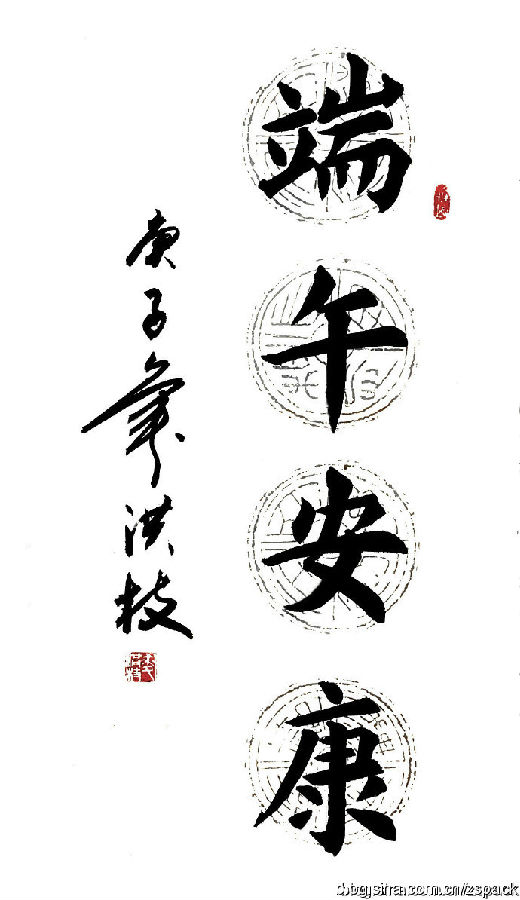 端午安康
庚子年洪枝
blog.sina.com.cn/zspack